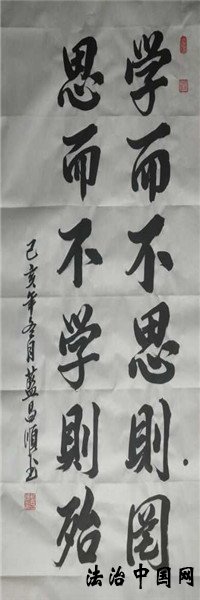 学而不思則罔
思而不学則殆
己亥年冬月蓝昌順书
法治中国网